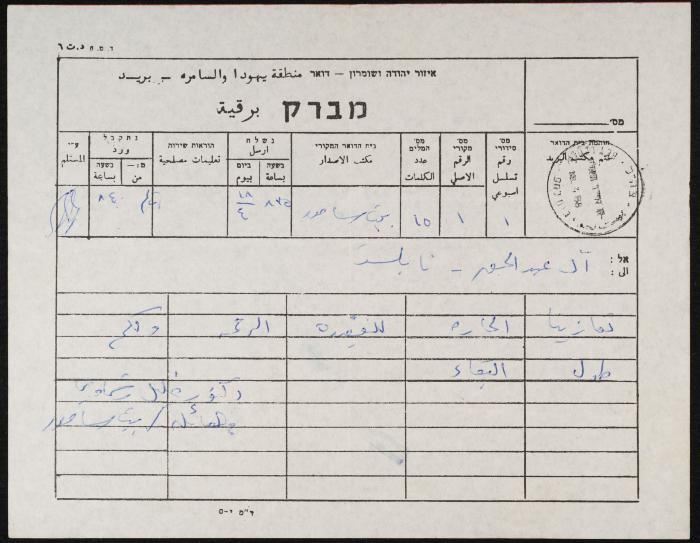 ד.ת 6 د.ت ٦
איזור יהודה ושומרון – דואר منطقة يهودا والسامره – بريد
מברק برقية
מס'
חותמת בית הדואר
ختم مكتب البريد
מס' סידורי
رقم تسلسل اسبوعي
מס' מקורי
الرقم الاصلي
מס' המלים
عدد الكلمات
בית הדואר המקורי
مكتب الاصدار
נשלח
ارسل
בשעה ביום
بساعة بيوم
הוראות שירות
تعليمات مصلحية
נתקבל
ورد
בשעה מ:–
بساعة من
ע"י
المستلم
١ ١ ١٥ بيت ساحور ٨٣٥ ١٨/٤ ٨٤٠
אל:
الى: آل عبد الحق - نابلس
تعازينا الحاره للفقيده الرحمه ولكم
طول البقاء